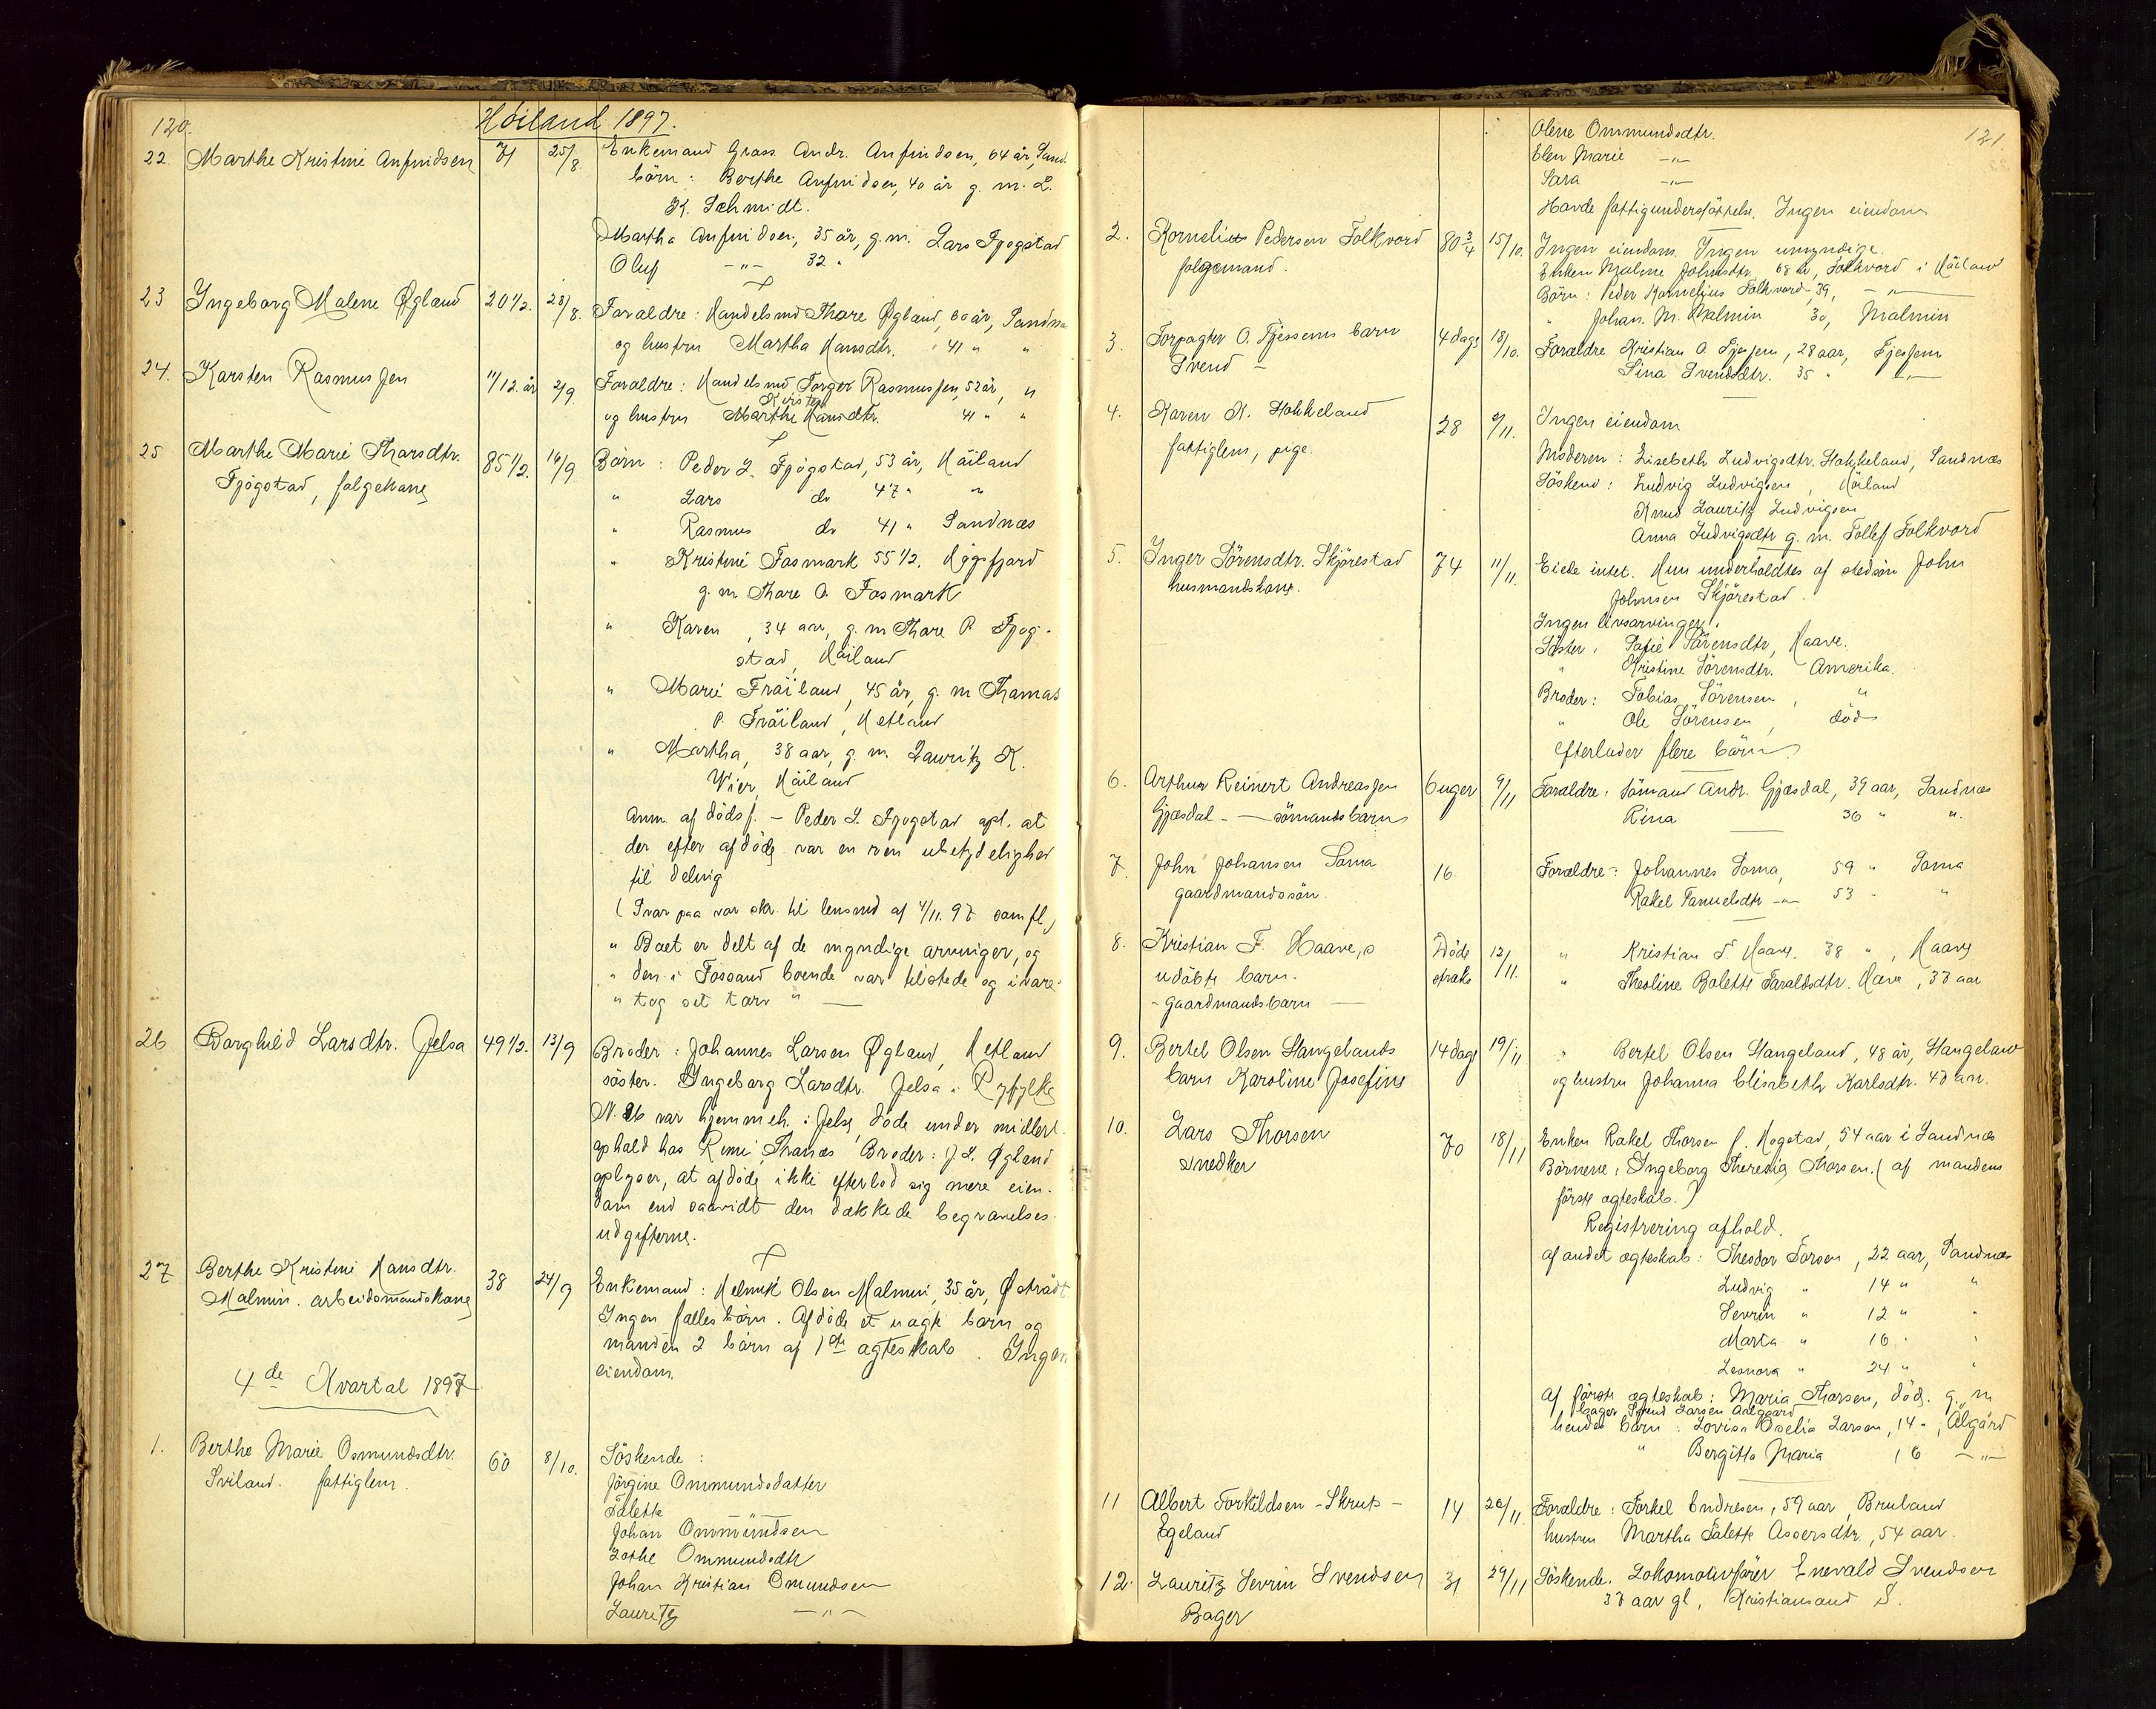 120.
Höiland 1897.
22. Marthe Kristine Anfindsen 71 25/8. Enkemand Grass. Andr. Anfindsen, 64 år, Sand.
börn: Berthe Anfindsen, 40 år g. m. L.
K. Schmidt.
Martha Anfindsen, 35 år, g. m. Lars Fjogstad
Oluf -"- 32 "
23 Ingeborg Malene Øgland 20 1/2. 28/8. Foraldre: Handelsmd Thore Øgland, 60 år, Sandn
og hustru Martha Hansdtr. 41 " "
24. Karsten Rasmussen 11/12 år 2/9. Foraldre: Handelsmd Torger Rasmussen, 52 år, "
og hustru Marthe Hansdtr. 41 " "
25 Marthe Marie Thorsdtr. 85 1/2. 16/9 Börn: Peder L. Fjögstad, 53 år, Höiland
Fjögstad, folgekone " Lars do 47 " "
" Rasmus do 41 " Sandnæs
" Kristine Fosmark 55 1/2. Högsfjord
g. m. Thore O. Fosmark
" Karen, 34 aar, g. m. Thore P. Fjog-
stad, Höiland
" Marie Fröiland, 45 år, g. m. Thomas
P. Fröiland, Hetland
" Martha, 38 aar, g. m. Lauritz K.
Vier, Höiland
Anm. af dödsf. - Peder L. Fjogstad opl. at
der efter afdöde var en ren ubetydelighed
til deling
(Svar paa var skr. til lensmd af 4/11. 97
" Boet er delt af de myndige arvinger, og
" den i Fossand boende var tilstede og ivare-
" tog set tarv " —
26 Borghild Larsdtr. Jelsa 49 1/2. 13/9 Broder: Johannes Larsen Øgland, Hetland
söster. Ingeborg Larsdtr. Jelsa i Ryfylke
N. 26 var hjemmeh. i Jelse, döde under midlert.
ophold hos Broder: J. L. Øgland
oplyser, at afdöde ikke efterlod sig mere eien-
dom end saavidt den dækkede begravelses-
udgifterne.
27 Berthe Kristine Hansdtr. 38 24/9 Enkemand: Helmik Olsen Malmin, 35 år, Østrådt
Malmin. arbeidsmandskone Ingen fælles börn. Afdöde et uægte barn og
manden 2 börn af 1ste ægteskab. Ingen
eiendom.
4de Kvartal 1897
1. Berthe Marie Osmundsdtr. 60 8/10. Söskende:
Sviland. fattiglem. Jörgine Ommundsdatter
Salette
Johan Ommundsen
Lothe Ommundsdtr
Johan Kristian Omundsen
Lauritz -"-
121.
Olene Ommundsdtr.
Elen Marie -"-
Sara -"-
Havde fattigunderstöttelse. Ingen eiendom
2. Kornelius Pedersen Folkvord 80 3/4 15/10. Ingen eiendom. Ingen umyndige.
folgemand. Enken Malene Johnsdtr. 68 år, Folkvord i Höiland
Börn: Peder Kornelius Folkvord, 39, -"-
" Johan. M. Malmin 30, Malmin
3. Forpagter O. Tjessems barn 4 dage 18/10. Foraldre Kristian O. Tjessem, 28 aar, Tjessem
Svend - Sina Svendsdtr. 35 " -"-
4. Karen K. Hokkeland 28 9/11. Ingen eiendom
fattiglem, pige. Moderen: Lisebeth Ludvigsdtr. Hokkeland, Sandnæs
Söskend: Ludvig Ludvigsen, Höiland
Knud Lauritz Ludvigsen
Anna Ludvigsdtr g. m. Tollef Folkvord
5. Inger Sörensdtr. Skjörestad 74 11/11. Eiede intet. Hun underholdtes af stedsön John
husmandskone. Johnsen Skjörestad.
Ingen livsarvinger.
Söster: Sörensdtr, Haave.
" Kristine Sörensdtr. Amerika.
Broder: Tobias Sörensen, "
" Ole Sörensen, död
efterlader flere börn
6. Arthur Reinert Andreassen 6 uger 9/11 Foraldre: Sömand Andr. Gjæsdal, 39 aar, Sandnæs
Gjæsdal - — sömandsbarn Rina — 36 " "
7. John Johansen Soma 16 Foraldre: Johannes Soma, 59 " Soma
gaardmandssön. Rakel -"- 53 " "
8. Kristian F. Haave,s Döde 12/11. " Kristian F. Haave. 38 ", Haave
udöbte barn. straks " Theoline Bolette Taraldsdtr. Have, 37 aar
- gaardmandsbarn —
9. Bertel Olsen Stangelands 14 dage 19/11 " Bertel Olsen Stangeland, 48 år, Stangeland
barn Karoline Josefine og hustru Johanna Elisabeth Karlsdtr. 47 aar.
10. Lars Thorsen 70 18/11 Enken Rakel Thorsen f. Hogstad, 54 aar i Sandnæs
Snedker Börnene: Ingeborg Theresia Thorsen. (af mandens
förste ægteskab.)
Registrering afhold.
af andet ægteskab: Theodor Torsen, 22 aar, Sandnæs
Ludvig " 14 " "
Severin " 12 " "
Marta " 16 " "
Leonora " 24 " "
Af förste ægteskab: Maria Thorsen, död. g. m
bager Svend Larsen Aalgaard
hendes börn: Lovisa Larsen, 14 -, Ålgård
" Bergitta Maria 16 -"-
11 Albert Torkildsen - Skruts - 14 20/11. Foraldre: Torkel Endresen, 59 aar, Bruland
Egeland hustru Martha Salette Asversdtr, 54 aar.
12. Lauritz Severin Svendsen 31 29/11 Söskende. Lokomotivförer Enevald Svendsen
Bager 37 aar gl, Kristiansand S.